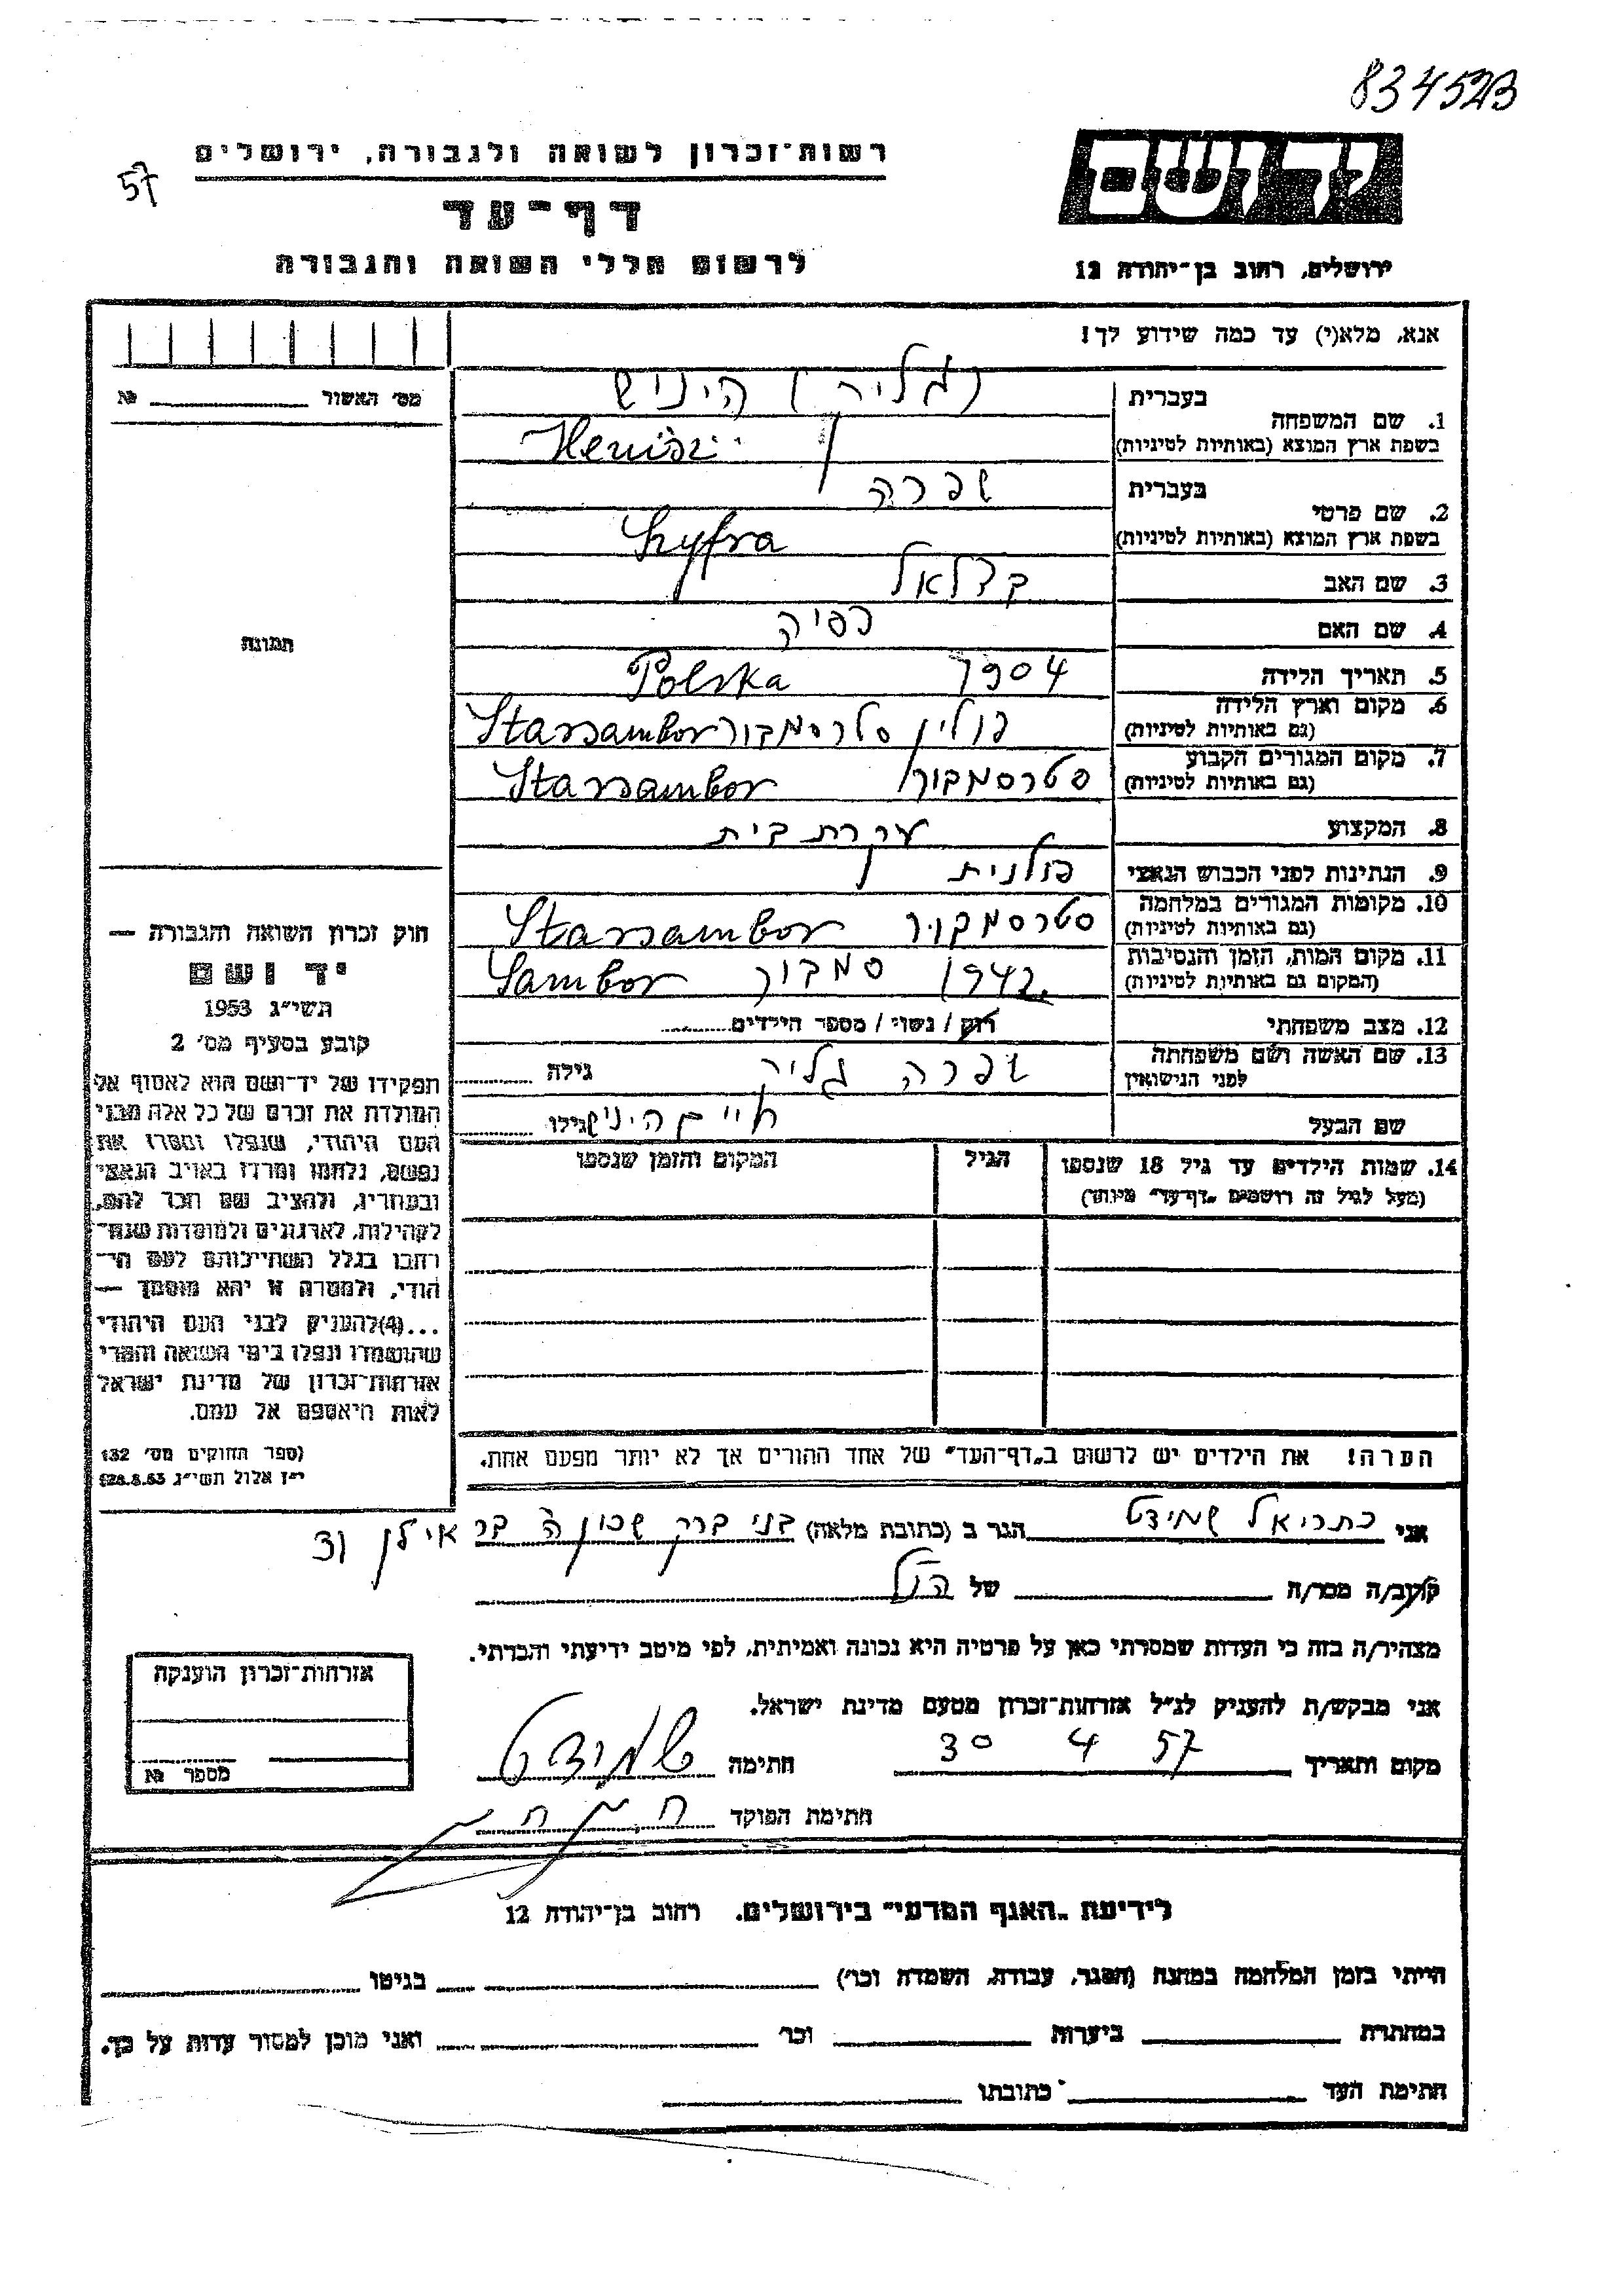 834523
57
רשות־זכרון לשואה ולגבורה, ירושלים
דף־עד
לרשום חללי השואה והגבורה
יד ושם
ירושלים, רחוב בן־יהודה 12
אנא, מלא(י) עד כמה שידוע לך!
מס' האשור № 
1. שם המשפחה
בעברית
(גליק) היניש
בשפת ארץ המוצא (באותיות לטיניות)
Henisz
2. שם פרטי
בעברית
שפרה
בשפת ארץ המוצא (באותיות לטיניות)
Szyfra
3. שם האב בצלאל
4. שם האם
5. תאריך הלידה 1904 Polska
6. מקום וארץ הלידה
(גם באותיות לטיניות)
פולין סטרסמבור Starsambor
7. מקום המגורים הקבוע
(גם באותיות לטיניות)
סטרסמבור Starsambor
8. המקצוע עקרת בית
9. הנתינות לפני הכבוש הנאצי פולנית
10. מקומות המגורים במלחמה
(גם באותיות לטיניות)
סטרסמבור Starsambor
11. מקום המות, הזמן והנסיבות
(המקום גם באותיות לטיניות)
1942 סמבור Sambor
12. מצב משפחתי רוק / נשוי / מספר הילדים
13. שם האשה ושם משפחתה
לפני הנישואין
שפרה גליק גילה
שם הבעל חיים היניש גילו
14. שמות הילדים עד גיל 18 שנספו
(מעל לגיל זה רושמים „דף־עד" מיוחד)
הגיל
המקום והזמן שנספו
הערה! את הילדים יש לרשום ב„דף־העד" של אחד ההורים אך לא יותר מפעם אחת.
תמונה
חוק זכרון השואה והגבורה —
יד ושם
תשי"ג 1953
קובע בסעיף מס' 2
תפקידו של יד־ושם הוא לאסוף אל
המולדת את זכרם של כל אלה מבני
העם היהודי, שנפלו ומסרו את
נפשם, נלחמו ומרדו באויב הנאצי
ובעוזריו, ולהציב שם וזכר להם,
לקהילות, לארגונים ולמוסדות שנח־
רבו בגלל השתייכותם לעם הי־
הודי, ולמטרה זו יהא מוסמך —
...(4) להעניק לבני העם היהודי
שהושמדו ונפלו בימי השואה והמרי
אזרחות־זכרון של מדינת ישראל
לאות היאספם אל עמם.
(ספר החוקים מס' 132
י"ז אלול תשי"ג 28.8.53)
אני כתריאל שמידט הגר ב (כתובת מלאה) בני ברק שכון ה בר אילן
קרוב/ה מכר/ה של הנ"ל
מצהיר/ה בזה כי העדות שמסרתי כאן על פרטיה היא נכונה ואמיתית, לפי מיטב ידיעתי והכרתי.
אני מבקש/ת להעניק לנ"ל אזרחות־זכרון מטעם מדינת ישראל.
מקום ותאריך 30 4 57 חתימה שמידט
חתימת הפוקד
אזרחות־זכרון הוענקה
מספר №
לידיעת „האגף המדעי" בירושלים. רחוב בן־יהודה 12
הייתי בזמן המלחמה במחנה (הסגר, עבודה, השמדה וכו') בגיטו
במחתרת ביערות וכו' ואני מוכן למסור עדות על כך.
חתימת העד כתובתו